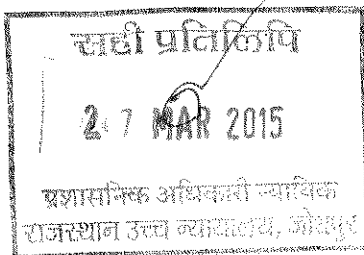 सही प्रतिलिपि
27 MAR 2015
प्रशासनिक अधिकारी न्यायिक
राजस्थान उच्च न्यायालय, जोधपुर